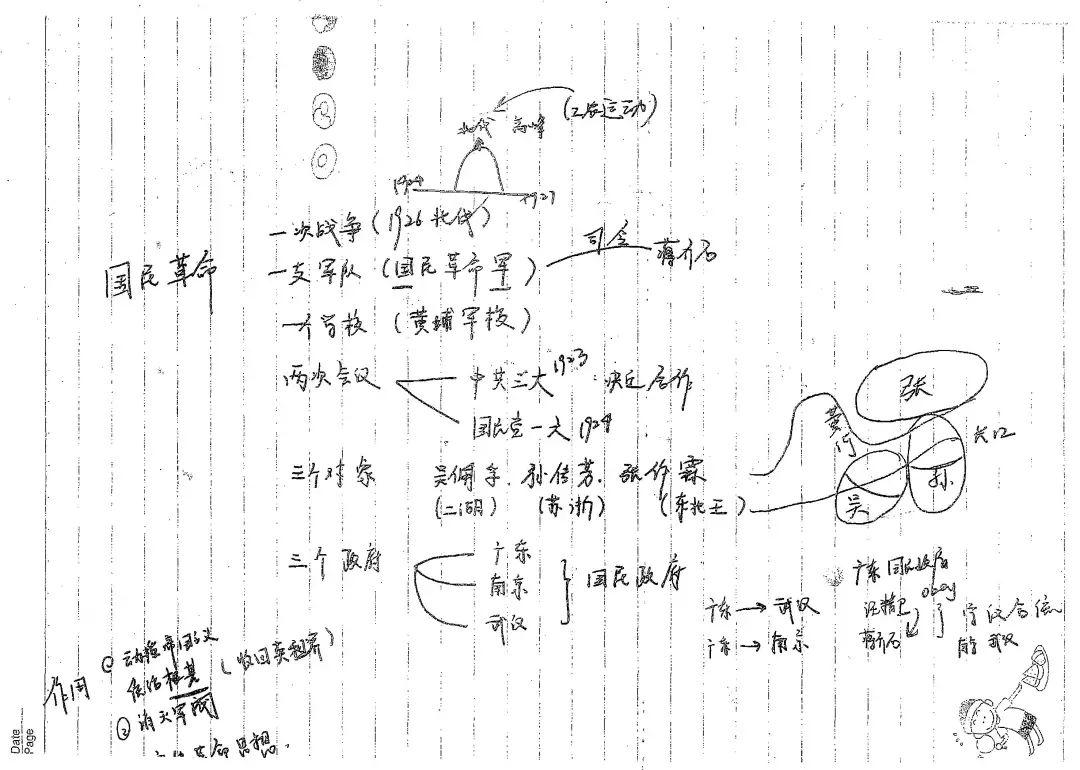 北伐 高峰 (工农运动)
1924 1927
国民革命
一次战争 (1926北伐)
一支军队 (国民革命军) 司令 蒋介石
一个军校 (黄埔军校)
两次会议
中共三大 1923 决定合作
国民党一大 1924
三个对象 吴佩孚、孙传芳、张作霖
(二湖) (苏浙) (东北王)
张
黄河
长江
吴 孙
三个政府
广东
南京
武汉
国民政府
广东→武汉
广东→南京
广东国民政府
汪精卫
蒋介石
宁汉合流
南京 武汉
作用
① 动摇帝国主义
统治根基 (收回英租界)
② 消灭军阀
革命思想.
Date
Page